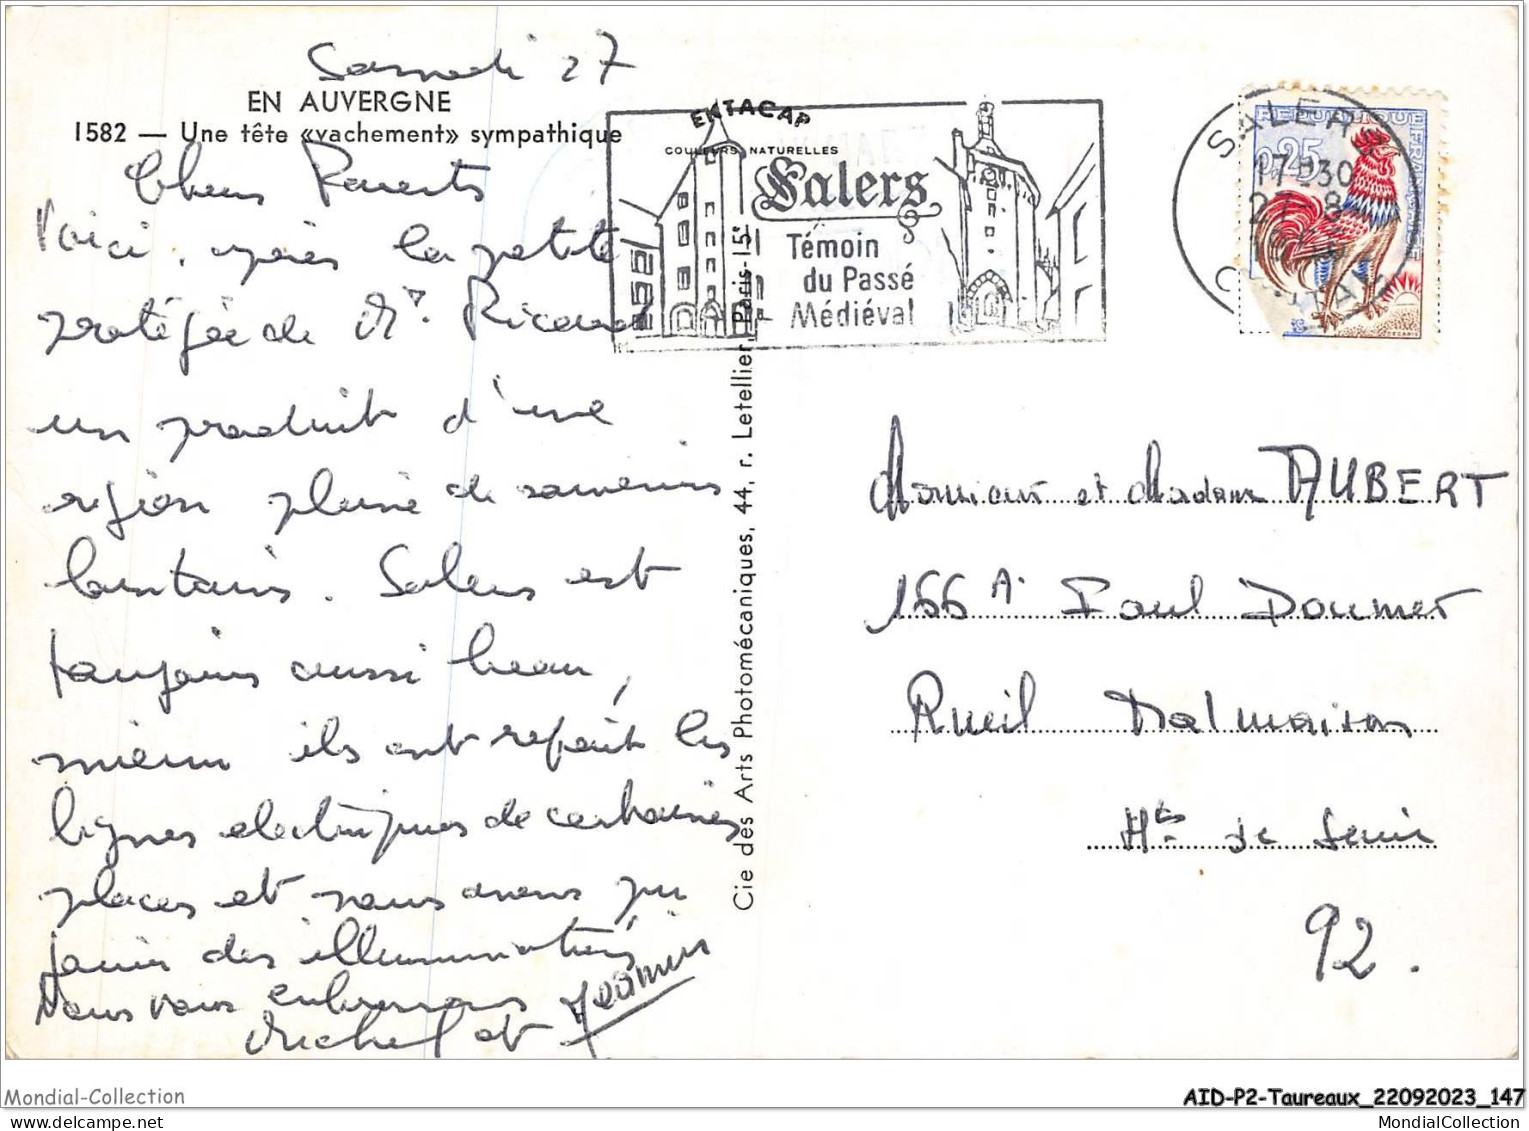 Samedi 27
EN AUVERGNE
1582 — Une tête «vachement» sympathique
Chers Parents
Voici, après la petite
protégée de Mr Ricard
un produit d'une
région pleine de souvenirs
lointains. Salers est
toujours aussi beau,
mieux ils ont refait les
lignes electriques de certaines
places et nous avons pu
jouir des illuminations
Nous vous embrassons
Michel et Jeanine
EKTACAP
COULEURS NATURELLES
Salers
Témoin
du Passé
Médiéval
Cie des Arts Photomécaniques, 44, r. Letellier, Paris-15e
SALERS
17H30
27-8
CANTAL
REPUBLIQUE FRANÇAISE
0,25
Monsieur et Madame AUBERT
166 A. Paul Doumer
Rueil Malmaison
Hts de Seine
92.
Mondial-Collection
AID-P2-Taureaux_22092023_147
mondial-collection.com
MondialCollection